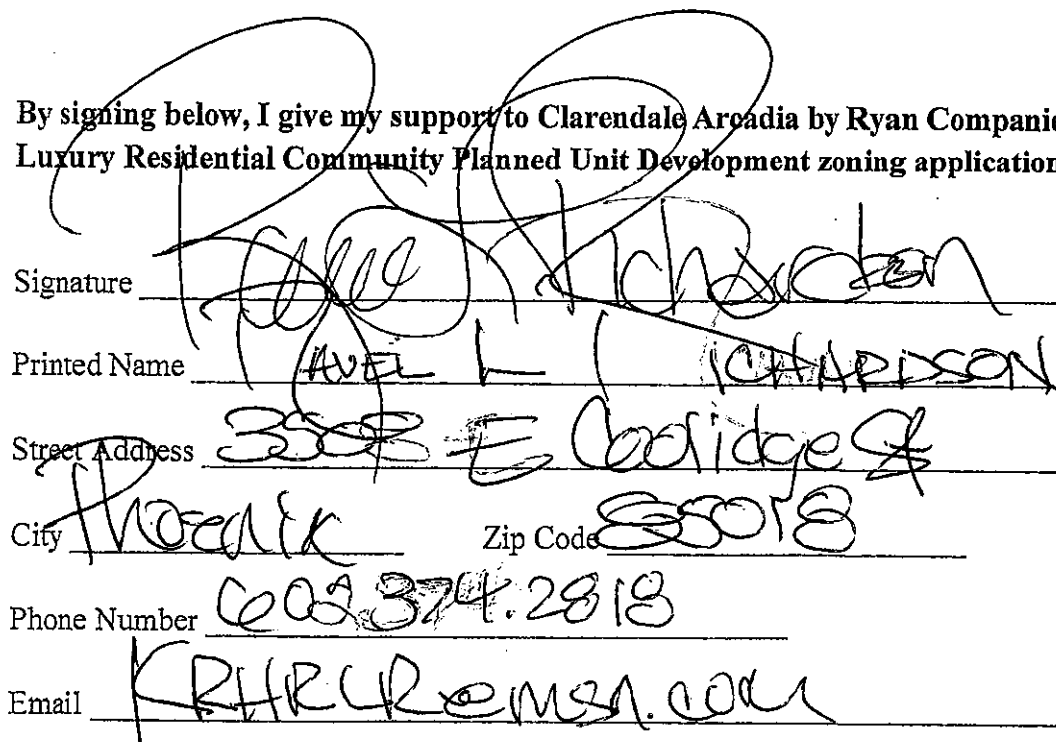 By signing below, I give my support to Clarendale Arcadia by Ryan Companie
Luxury Residential Community Planned Unit Development zoning application
Signature Richardson
Printed Name L RICHARDSON
Street Address 3508 E Coolidge St
City Phoenix Zip Code 85018
Phone Number 602.374.2818
Email KRHRLR@msn.com